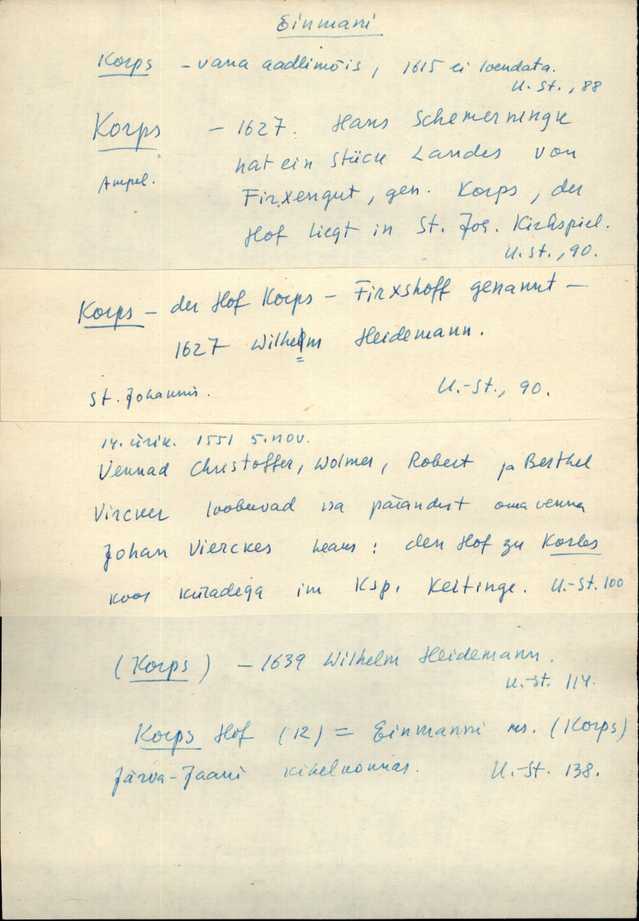 Einmani
Korps - vana aadlimõis, 1615 ei loendata.
U.St., 88
Korps - 1627. Hans Schemerningk
Ampel. hat ein Stück Landes von
Firxengut, gen. Korps, der
Hof liegt in St. Joh. Kirchspiel.
U.St., 90.
Korps - der Hof Korps - Firxshoff genannt -
1627 Wilhelm Heidemann.
St. Johannis. U.-St., 90.
14. ürik. 1551 5. nov.
Vennad Christoffer, Wolmer, Robert ja Berthel
Vircker loobuvad isa pärandist oma venna
Johan Vierckes heaks: den Hof zu Korbes
koos küladega im Ksp. Keitinge. U.-St. 100
(Korps) - 1639 Wilhelm Heidemann.
U.-St. 114.
Korps Hof (12) = Einmanni ms. (Korps)
Järva-Jaani kihelkonnas. U.-St. 138.